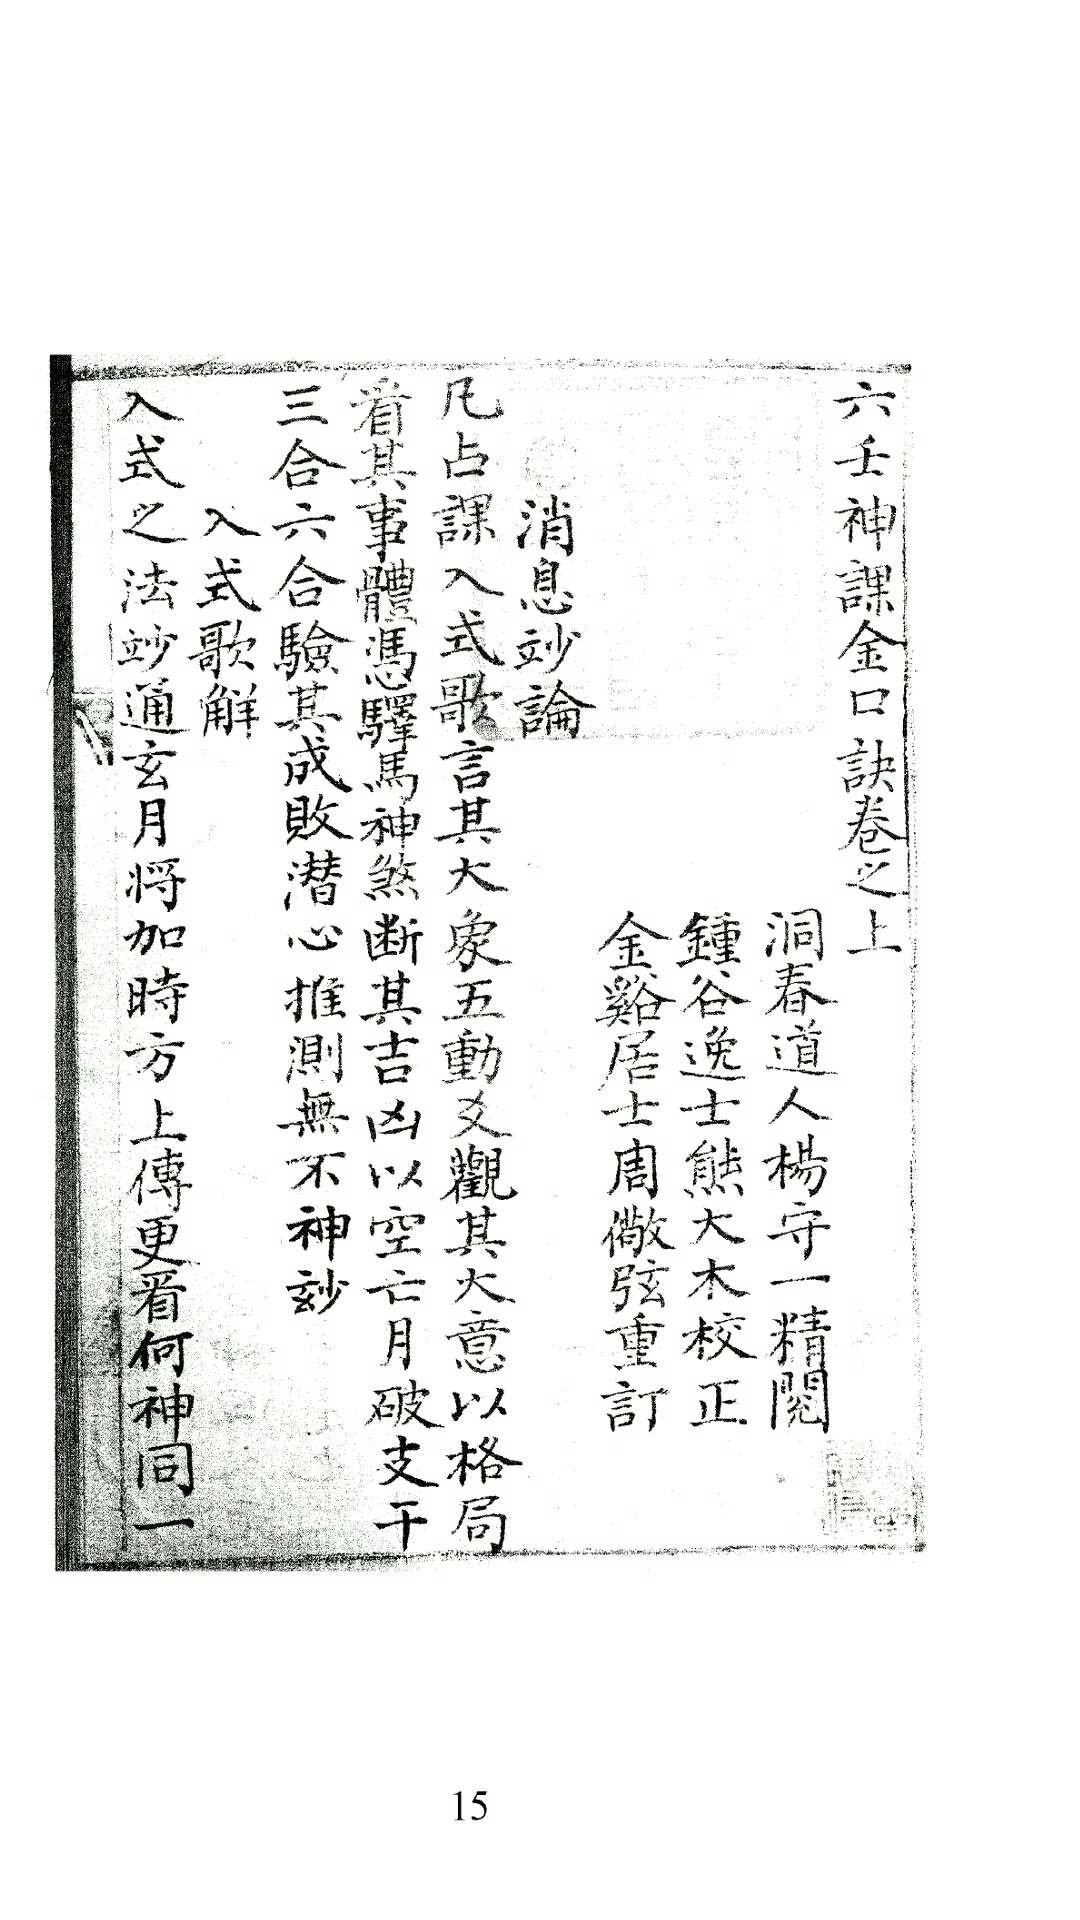 六壬神課金口訣卷之上
洞春道人楊守一精閱
鍾谷逸士熊大木校正
金谿居士周儆弦重訂
消息玅論
凡占課入式歌言其大象五動爻觀其大意以格局
看其事體馮驛馬神煞断其吉凶以空亡月破支干
三合六合驗其成敗潜心推測無不神玅
入式歌解
入式之法玅通玄月将加時方上傳更看何神同一
15